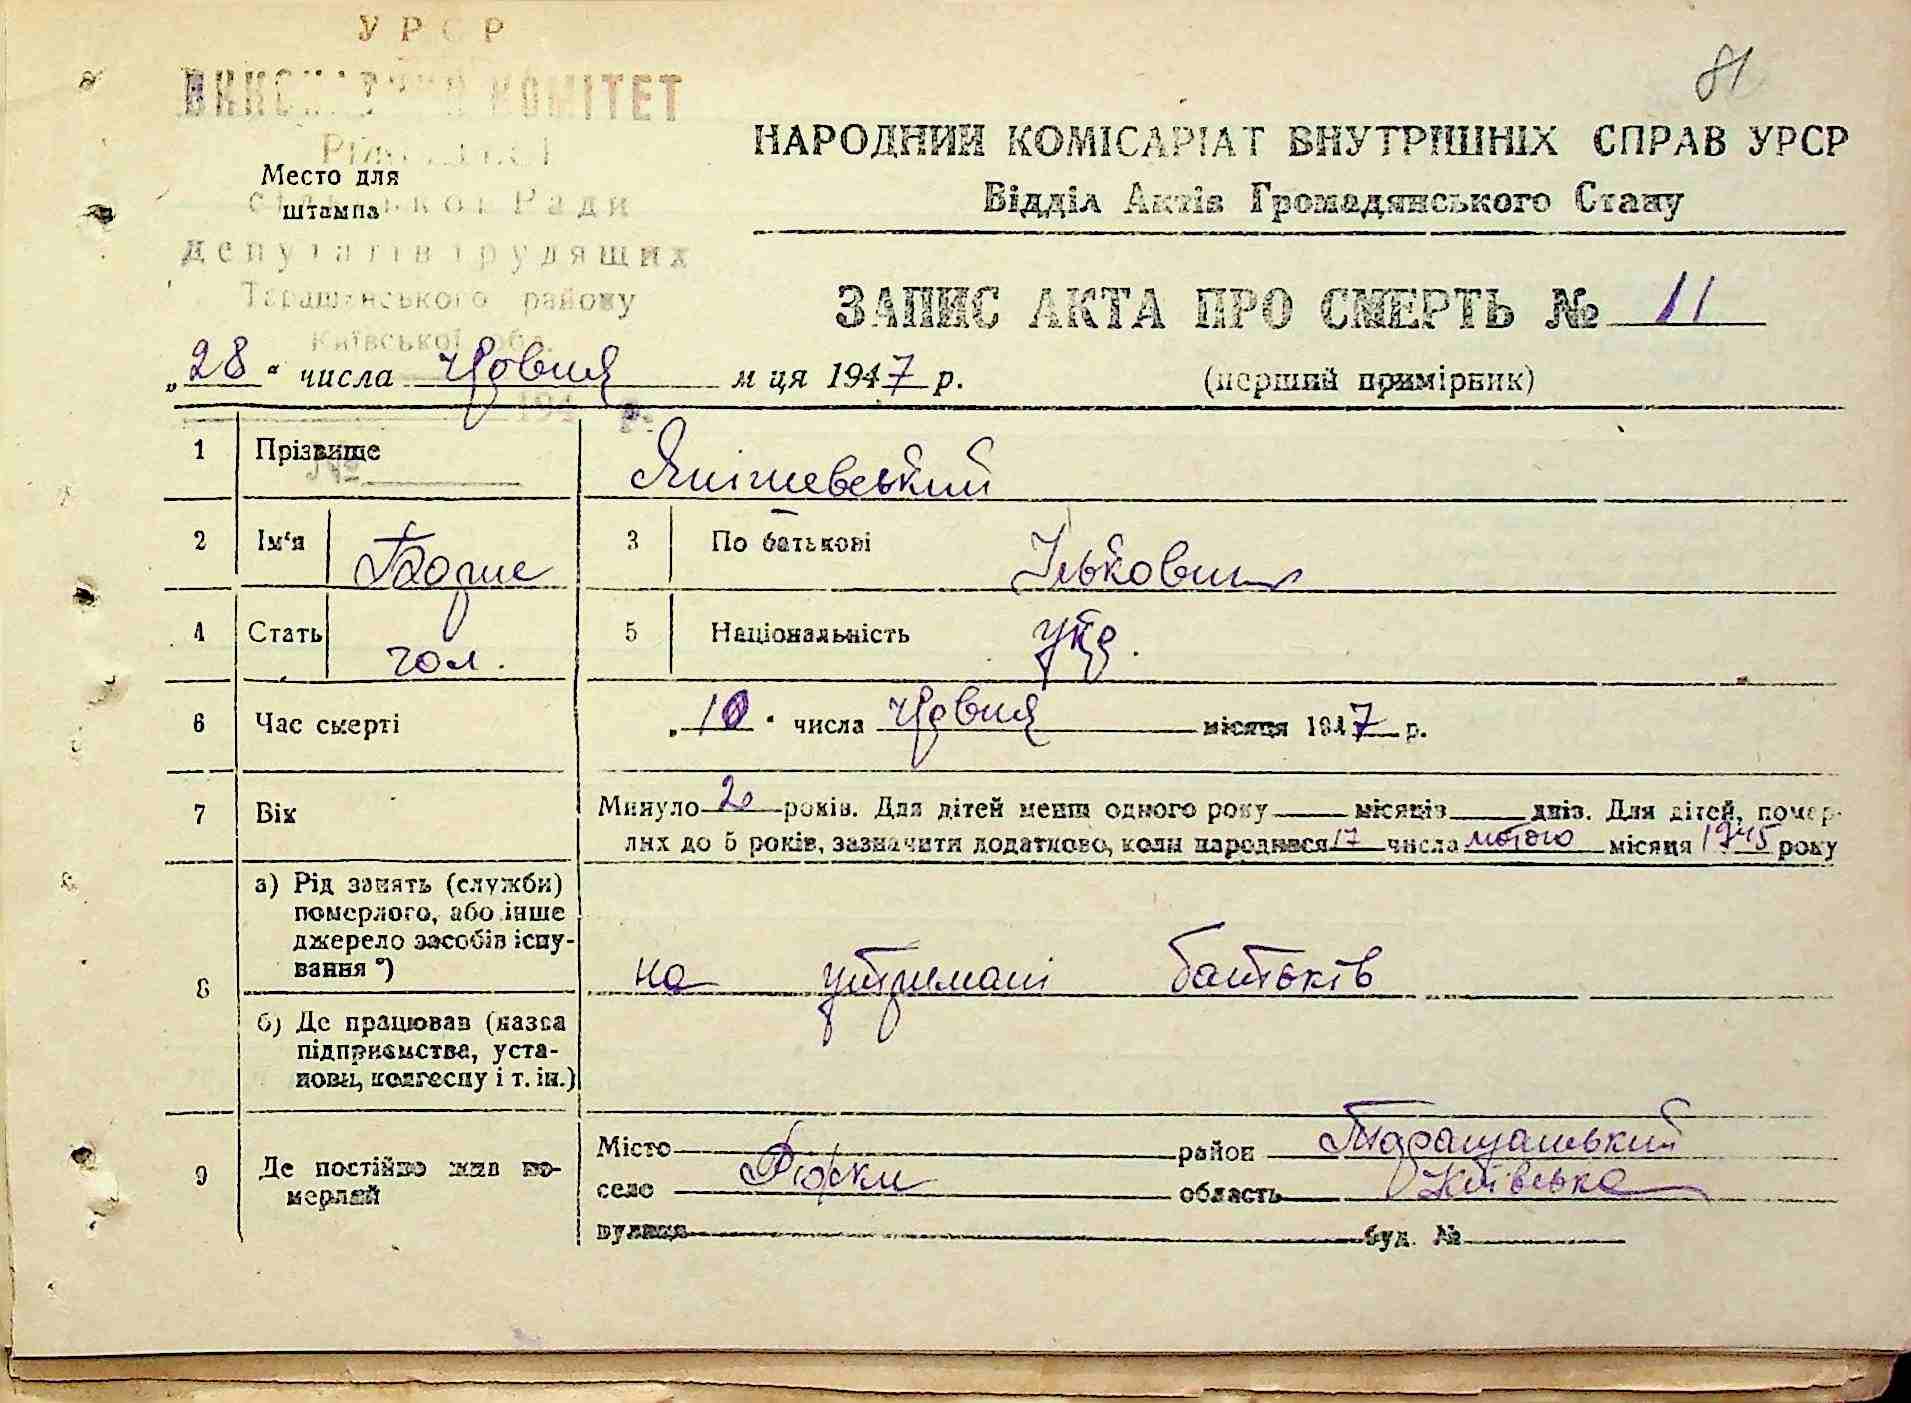 УРСР
81
ВИКОНАВЧИЙ КОМІТЕТ
НАРОДНИЙ КОМІСАРІАТ ВНУТРІШНІХ СПРАВ УРСР
Место для
штампа
сільської Ради
Відділ Актів Громадянського Стану
депутатів трудящих
Таращанського району
Київської обл.
ЗАПИС АКТА ПРО СМЕРТЬ № 11
„28“ числа червня м ця 1947 р.
(перший примірник)
194 р.
№
1 Прізвище Янішевський
2 Ім‘я Борис 3 По батькові Ількович
4 Стать чол. 5 Національність укр.
6 Час смерті „10“ числа червня місяця 1947 р.
7 Вік Минуло 2 років. Для дітей менш одного року місяців днів. Для дітей, помер-
лих до 5 років, зазначити додатково, коли народився 17 числа лютого місяця 1945 року
8 а) Рід занять (служби)
померлого, або інше
джерело засобів існу-
вання *)
на утримані батьків
б) Де працював (назва
підприємства, уста-
нови, колгоспу і т. ін.)
9 Де постійно жив по-
мерлий
Місто район Таращанський
село Ріжки область Київська
вулиця буд. №